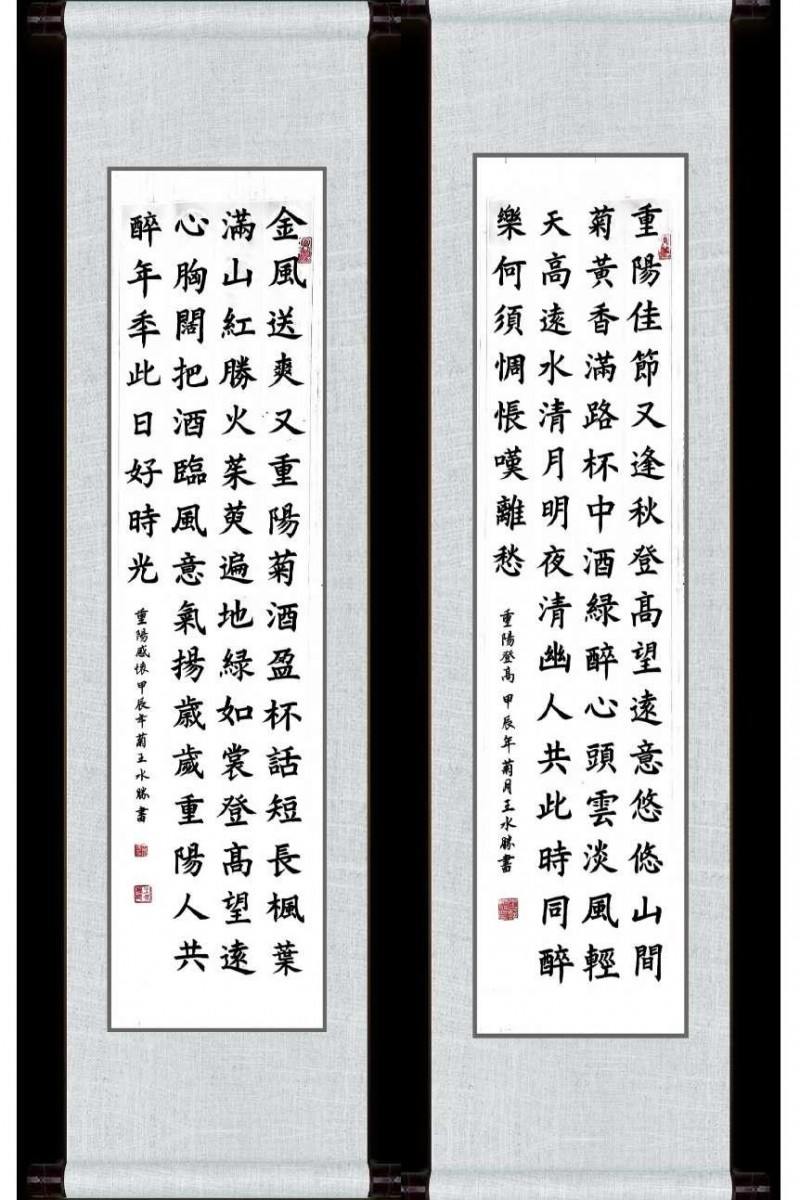 重陽佳節又逢秋登高望遠意悠悠山間
菊黃香滿路杯中酒綠醉心頭雲淡風輕
天高遠水清月明夜清幽人共此時同醉
樂何須惆悵嘆離愁
重陽登高 甲辰年菊月王水勝書
金風送爽又重陽菊酒盈杯話短長楓葉
滿山紅勝火茱萸遍地綠如裳登高望遠
心胸闊把酒臨風意氣揚歲歲重陽人共
醉年秊此日好時光
重陽感懷甲辰年菊王水勝書